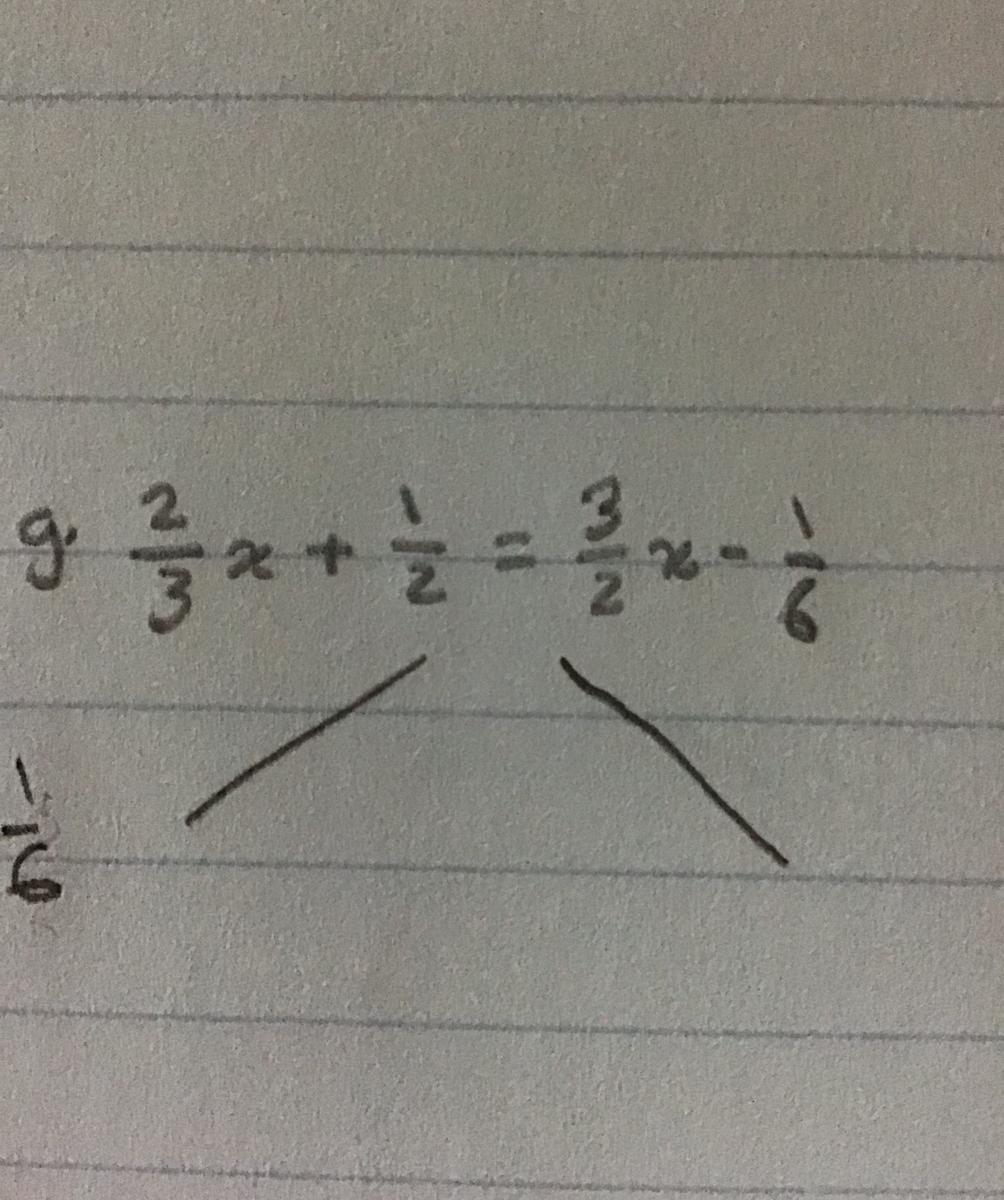 g. 2/3 x + 1/2 = 3/2 x - 1/6
1/6